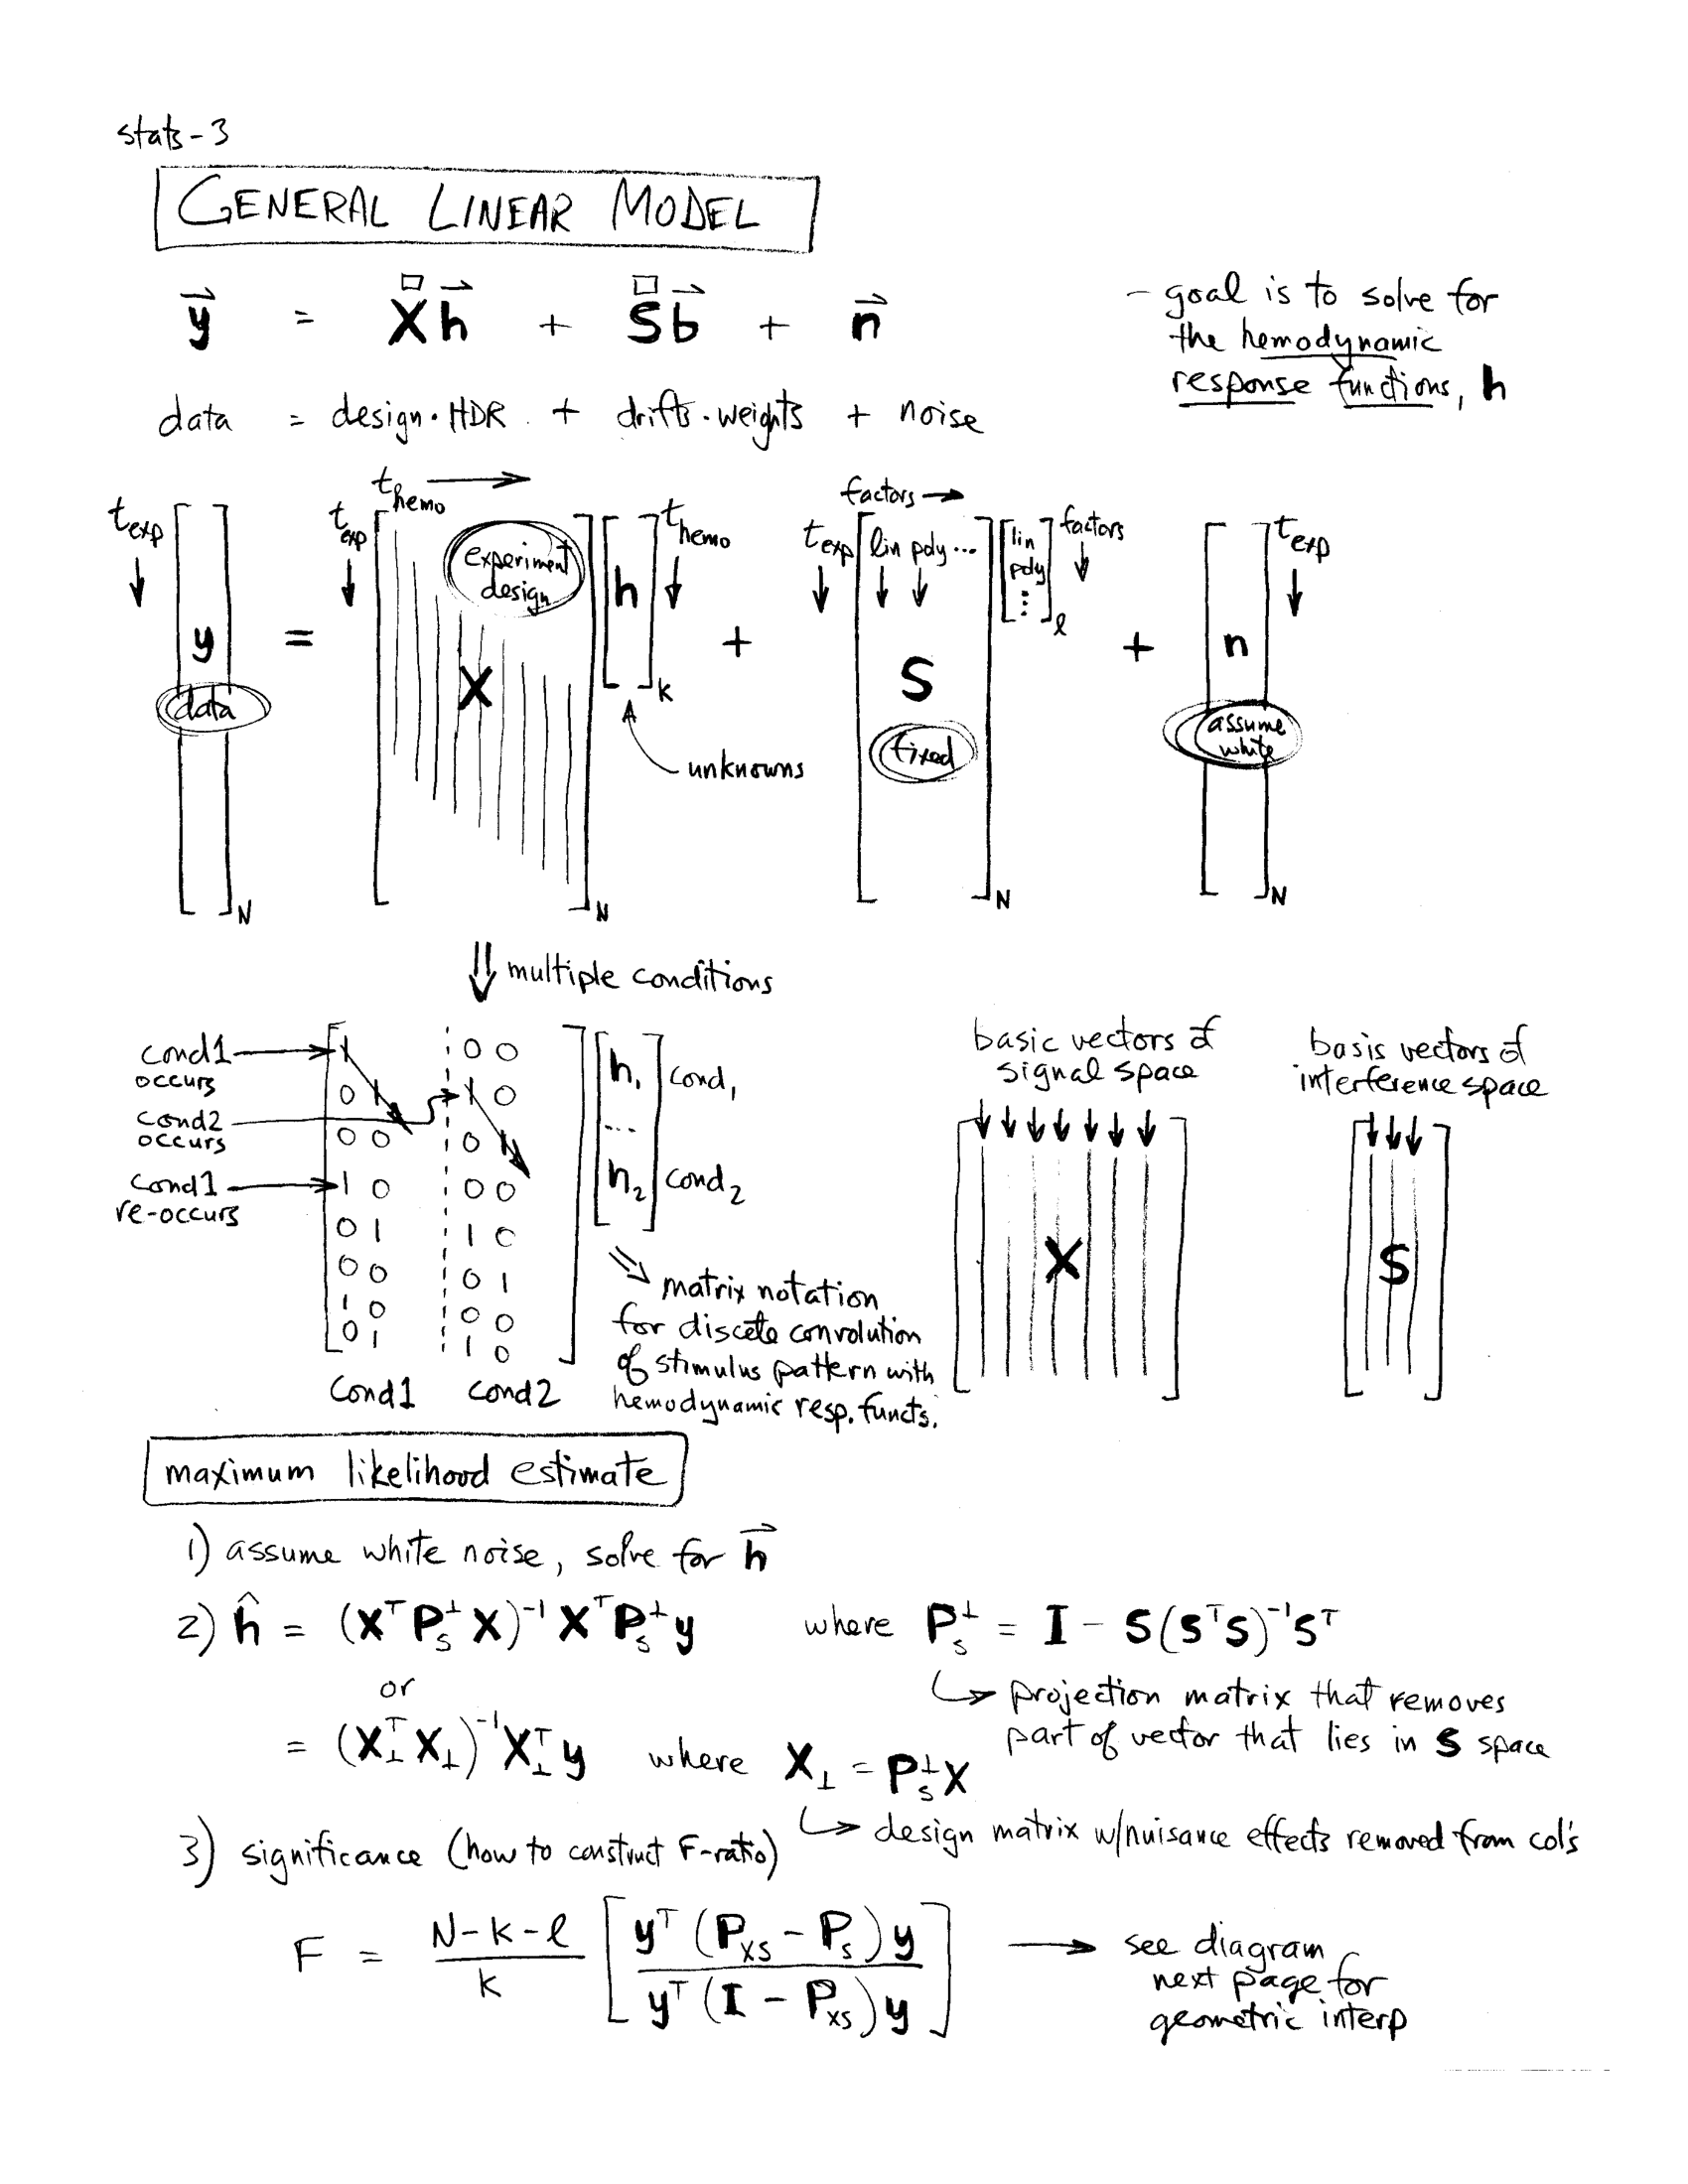 stats-3
GENERAL LINEAR MODEL
y = X h + S b + n
data = design · HDR + drifts · weights + noise
- goal is to solve for
the hemodynamic
response functions, h
t_hemo →
factors →
t_exp [ y ] t_exp [ experiment design X ] [ h ] t_hemo t_exp [ lin poly ... S ] [ lin poly ... ] factors [ n ] t_exp
= + +
data
fixed
assume
white
k
ℓ
unknowns
N N N N
⇓ multiple conditions
cond1
occurs
cond2
occurs
cond1
re-occurs
1 0 0
0 1 1 0
0 0 0 1
1 0 0 0
0 1 1 0
0 0 0 1
1 0 0 0
0 1 1 0
cond1 cond2
h₁ cond₁
...
h₂ cond₂
⇒ matrix notation
for discete convolution
of stimulus pattern with
hemodynamic resp. functs.
basic vectors of
signal space
X
basis vectors of
interference space
S
maximum likelihood estimate
1) assume white noise, solve for h
2) ĥ = (XᵀP_s^⊥X)⁻¹XᵀP_s^⊥y where P_s^⊥ = I - S(SᵀS)⁻¹Sᵀ
↳ projection matrix that removes
part of vector that lies in S space
or
= (X_⊥ᵀX_⊥)⁻¹X_⊥ᵀy where X_⊥ = P_s^⊥X
↳ design matrix w/nuisance effects removed from col's
3) significance (how to construct F-ratio)
F = N-k-ℓ / k [ yᵀ(P_XS - P_S)y / yᵀ(I - P_XS)y ] → see diagram
next page for
geometric interp